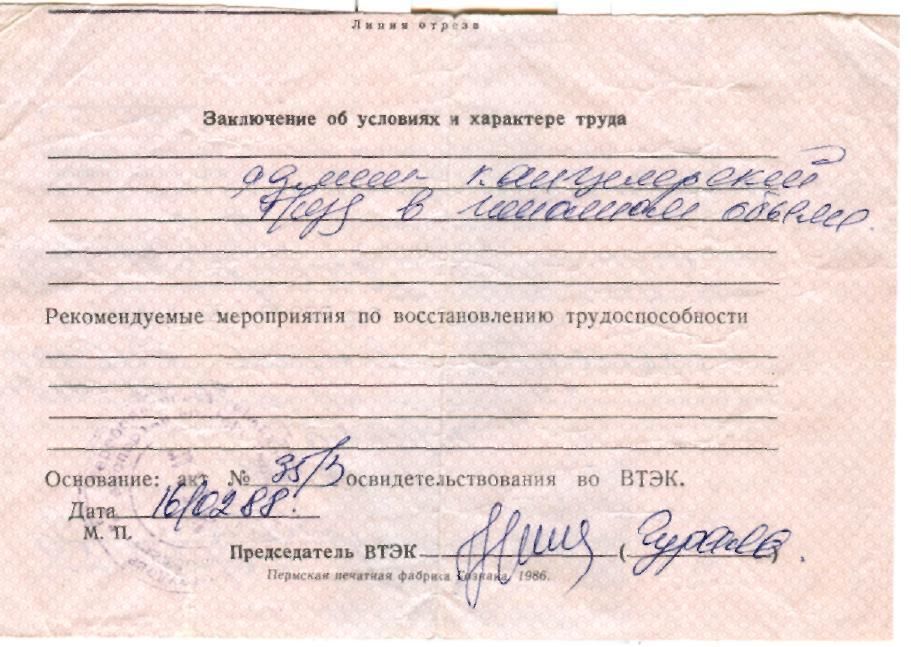 Линия отреза
Заключение об условиях и характере труда
админ- канцелярский
труд в неполном объеме.
Рекомендуемые мероприятия по восстановлению трудоспособности
Основание: акт № 35/3 освидетельствования во ВТЭК.
Дата 16/02 88.
М. П.
Председатель ВТЭК ( )
Пермская печатная фабрика Гознака. 1986.